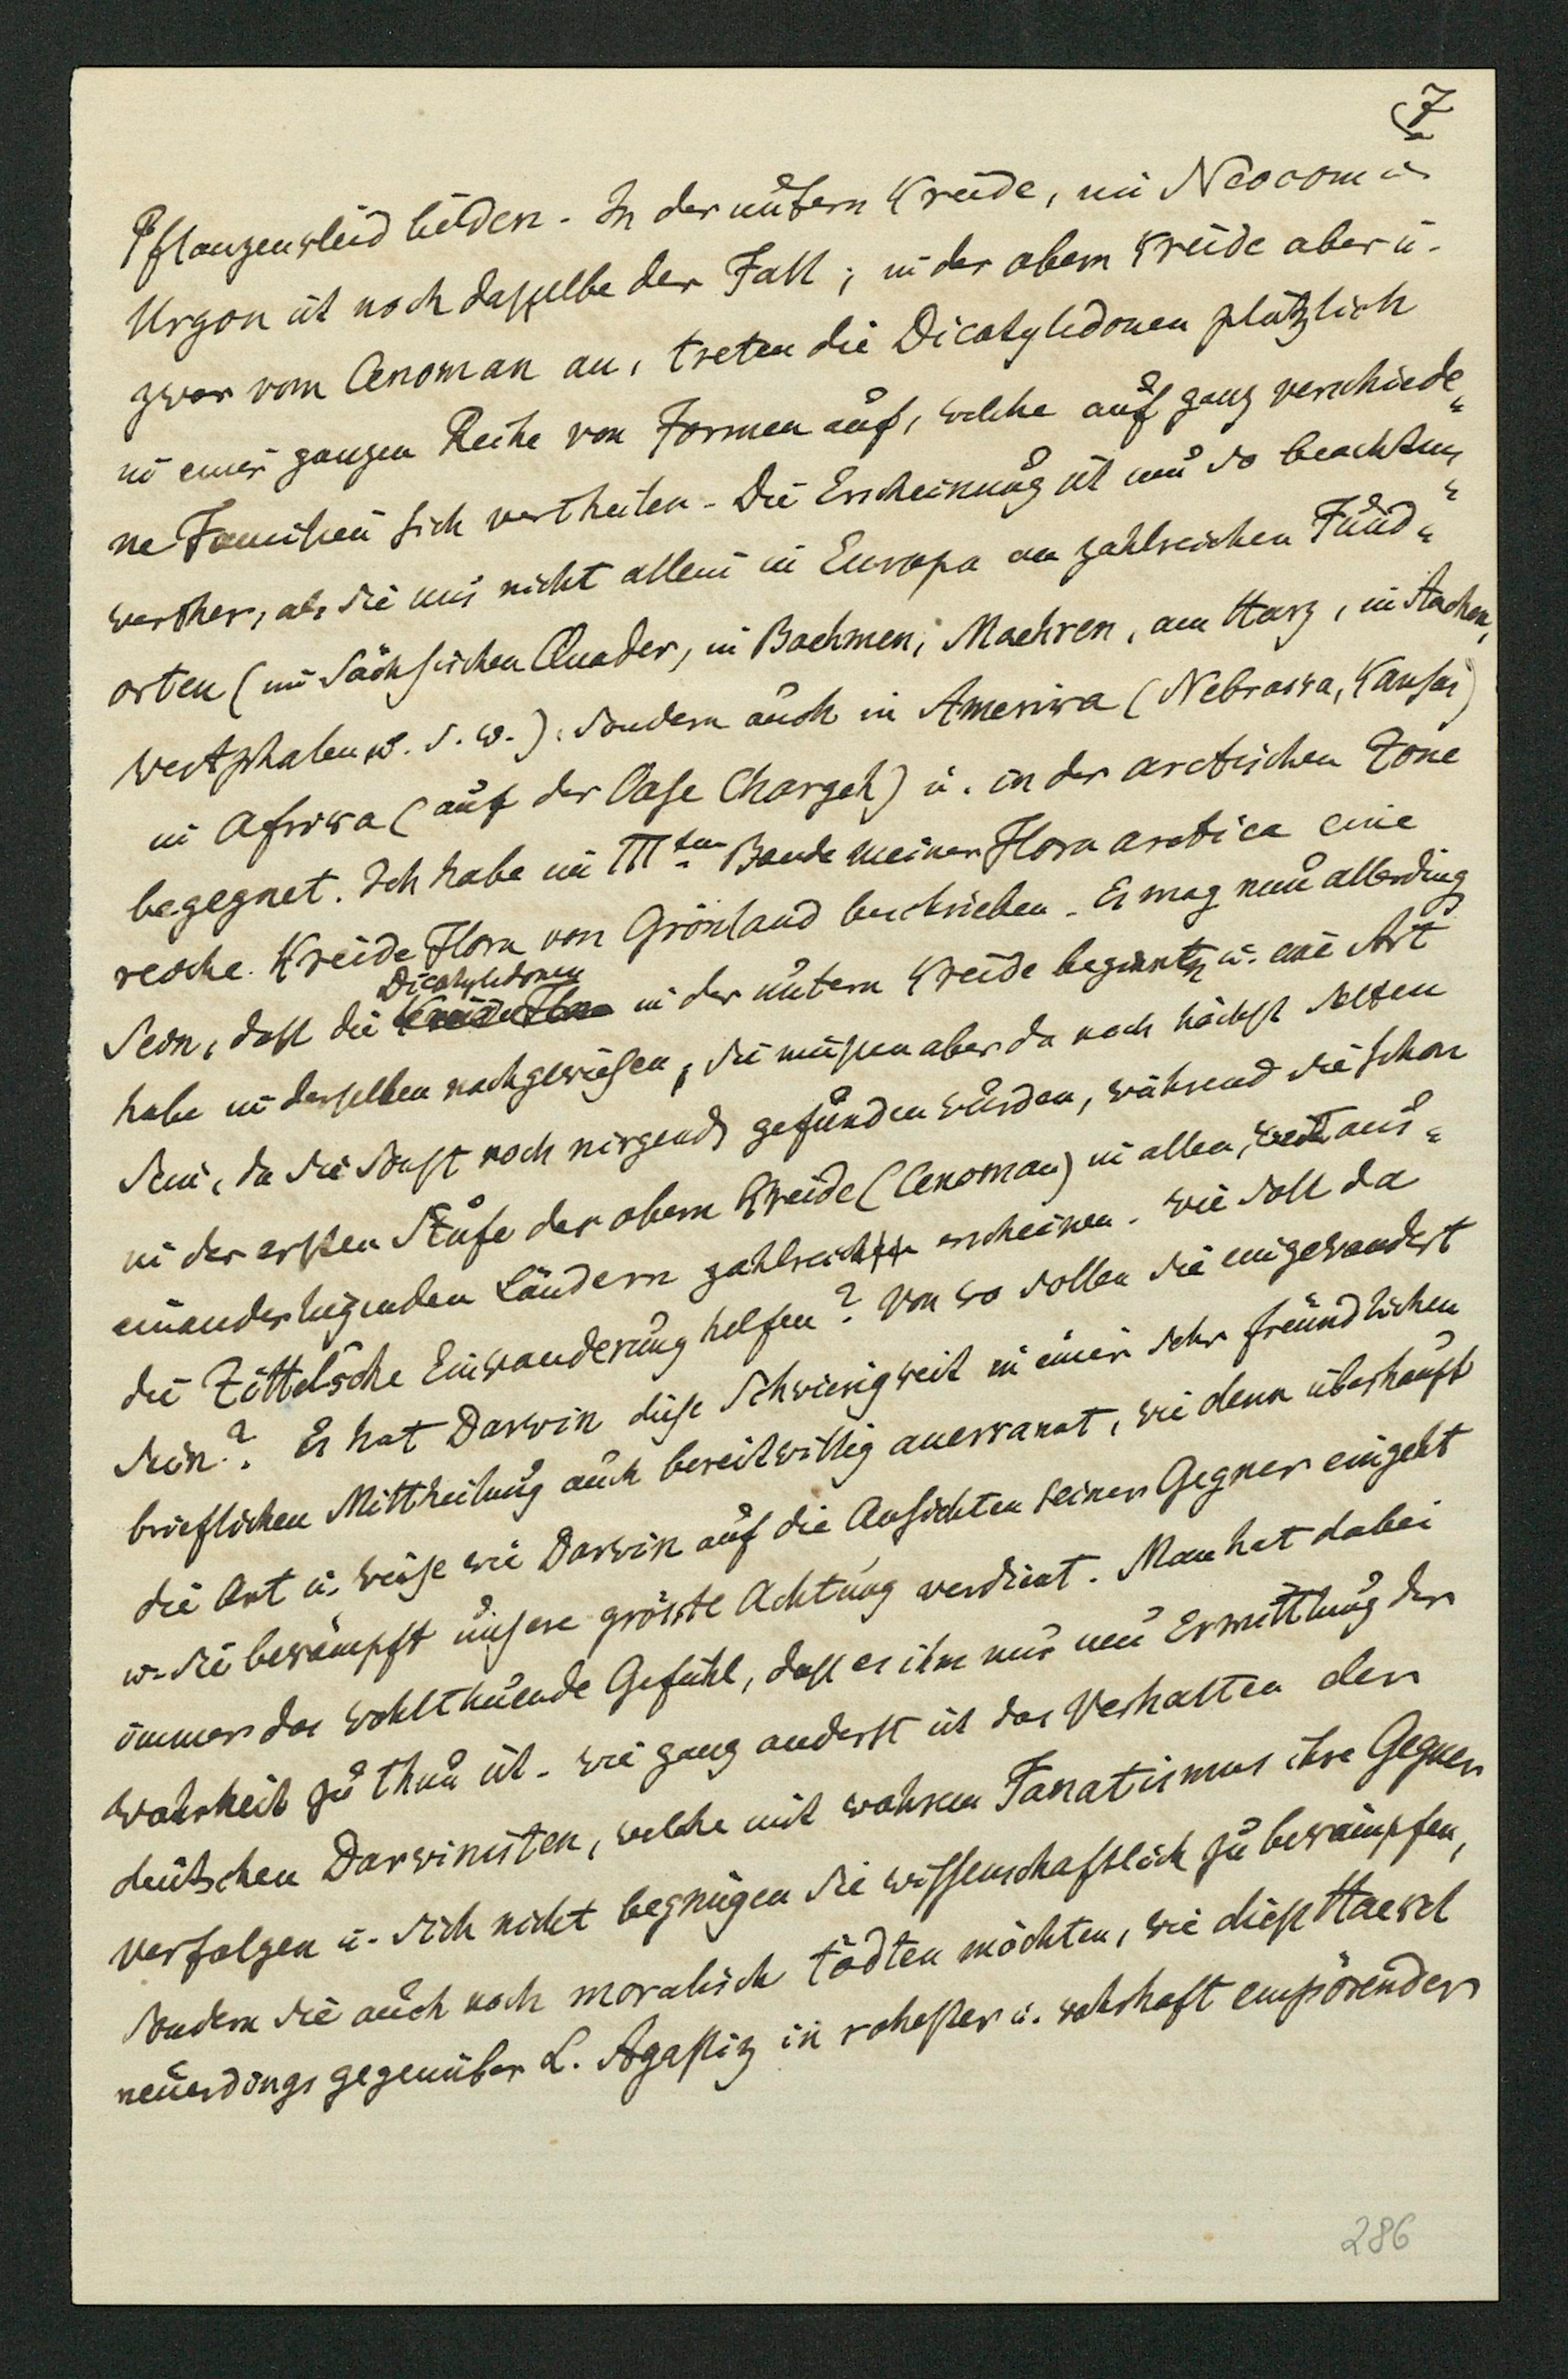 7
Pflanzenkleid bilden. In der untern Kreide, im Neocom u.
Urgon ist noch dasselbe der Fall; in der obern Kreide aber u.
zwar vom Cenoman an, treten die Dicotyledonen plötzlich
in einer ganzen Reihe von Formen auf, welche auf ganz verschiede=
ne Familien sich vertheilen. Die Erscheinung ist um so beachtens=
werther, als sie uns nicht allein in Europa an zahlreichen Fund=
orten (im Sächsischen Quader, in Boehmen, Maehren, am Harz, in Aachen,
Westphalen u. s. w.), sondern auch in Amerika (Nebraska, Kansas)
in Afrika (auf der Oase Chargeh) u. in der arctischen Zone
begegnet. Ich habe im IIIten Bande meiner Flora arctica eine
reiche Kreide Flora von Grönland beschrieben. Es mag nun allerding
sein, dass die Kreide Flora Dicotyledonen in der untern Kreide beginnen u. eine Art
habe in derselben nachgewiesen, sie müssen aber da noch höchst selten
sein, da sie sonst noch nirgends gefunden wurden, während sie schon
in der ersten Stufe der obern Kreide (Cenoman) in allen, weit aus=
einanderliegenden Ländern zahlreich erscheinen. Wie soll da
die Zittel'sche Einwanderung helfen? Von wo sollen sie eingewandert
sein? Es hat Darwin diese Schwierigkeit in einer sehr freundlichen
brieflichen Mittheilung auch bereitwillig anerkannt, wie denn überhaupt
die Art u. Weise wie Darwin auf die Ansichten seiner Gegner eingeht
u. sie bekämpft unsere grösste Achtung verdient. Man hat dabei
immer das wohlthuende Gefühl, dass es ihm nur um Ermittlung der
Wahrheit zu thun ist. Wie ganz anderst ist das Verhalten der
deutschen Darwinisten, welche mit wahrem Fanatismus ihre Gegner
verfolgen u. sich nicht begnügen sie wissenschaftlich zu bekämpfen,
sondern sie auch noch moralisch tödten möchten, wie diess Haekel
neuerdings gegenüber L. Agassiz in rohester u. wahrhaft empörender
286